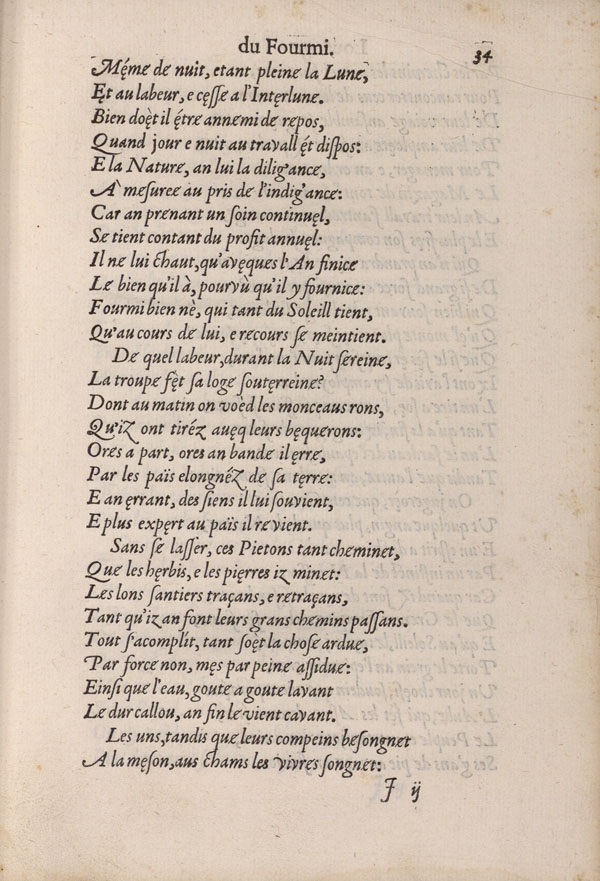 du Fourmi.
34
Mę́me de nuit, etant pleine la Lune,
Et au labeur, e cęſſe a l'Intęrlune.
Bien doę̀t il ę́tre annemi de repos,
Quand jour e nuit au travalh ę́t diſpos:
E la Nature, an lui la dilig'ance,
A meſuree au pris de l'indig'ance:
Car an prenant un ſoin continuęl,
Se tient contant du profit annuęl:
Il ne lui chaut, qu'avęques l'An finice
Le bien qu'il à, pourvù qu'il y fournice:
Fourmi bien nè, qui tant du Soleilh tient,
Qu'au cours de lui, e recours ſe meintient.
De quel labeur, durant la Nuit ſereine,
La troupe fę̀t ſa loge ſoutęrreine?
Dont au matin on voę̀d les monceaus rons,
Qu'iz ont tiréz avęq leurs bęquerons:
Ores a part, ores an bande il ęrre,
Par les païs elongnéz de ſa tęrre:
E an ęrrant, des ſiens il lui ſouvient,
E plus expęrt au païs il revient.
Sans ſe laſſer, ces Pietons tant cheminet,
Que les hęrbis, e les pięrres iz minet:
Les lons ſantiers traçans, e retraçans,
Tant qu'iz an font leurs grans chemins paſſans.
Tout s'acomplit, tant ſoę̀t la choſe ardue,
Par force non, męs par peine aſſidue:
Einſi que l'eau, goute a goute lavant
Le dur callou, an fin le vient cavant.
Les uns, tandis que leurs compeins beſongnet
A la męſon, aus chams les vivres ſongnet:
F ij